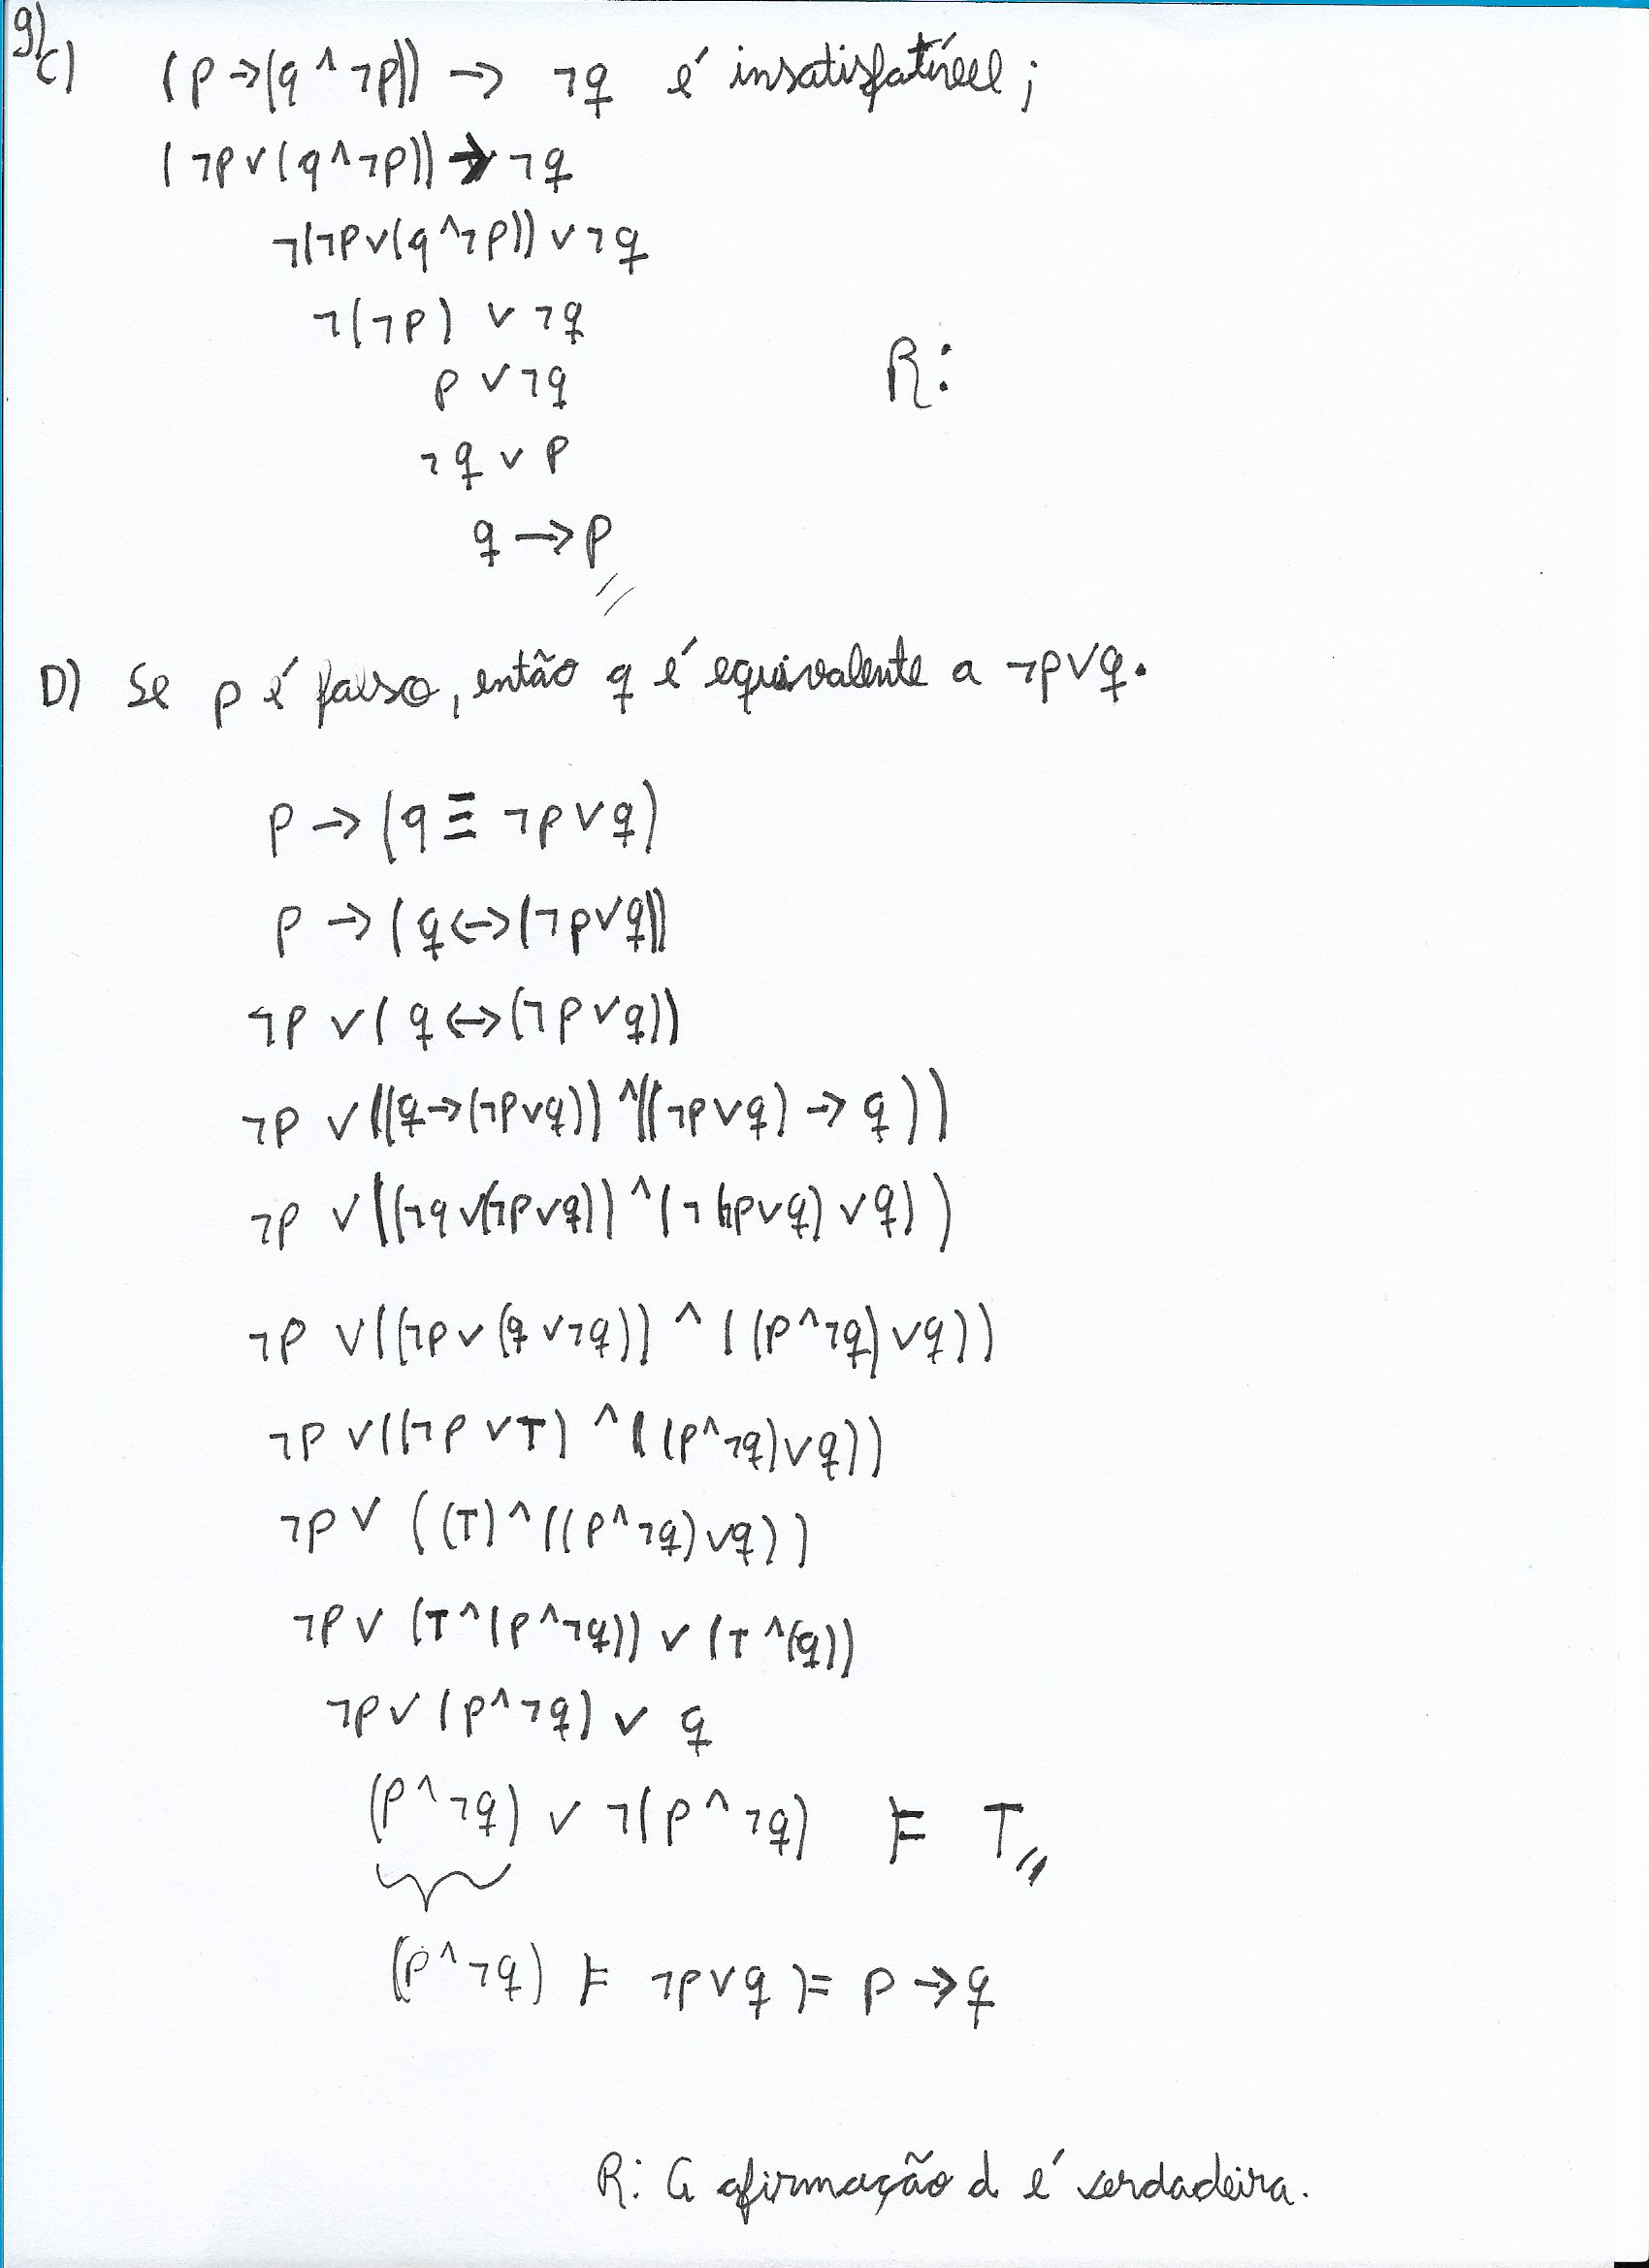 9)
c) (p → (q ^ ¬p)) → ¬q é insatisfatível;
(¬p v (q ^ ¬p)) → ¬q
¬(¬p v (q ^ ¬p)) v ¬q
¬(¬p) v ¬q
R:
p v ¬q
¬q v p
q → p
D) Se p é falso, então q é equivalente a ¬p v q.
p → (q ≡ ¬p v q)
p → (q ↔ (¬p v q))
¬p v (q ↔ (¬p v q))
¬p v ((q → (¬p v q)) ^ ((¬p v q) → q))
¬p v ((¬q v (¬p v q)) ^ (¬(¬p v q) v q))
¬p v ((¬p v (q v ¬q)) ^ ((p ^ ¬q) v q))
¬p v ((¬p v T) ^ ((p ^ ¬q) v q))
¬p v ((T) ^ ((p ^ ¬q) v q))
¬p v (T ^ (p ^ ¬q)) v (T ^ (q))
¬p v (p ^ ¬q) v q
(p ^ ¬q) v ¬(p ^ ¬q) ⊨ T
(p ^ ¬q) ⊨ ¬p v q ⊨ p → q
R: A afirmação d é verdadeira.